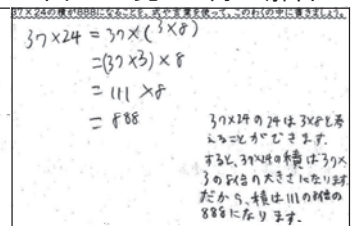 37×24の積が888になることを、式や言葉を使って、このわくの中に書きましょう。
37×24 = 37×(3×8)
=(37×3)×8
= 111 ×8
= 888
37×24の24は3×8と考
えることができます。
すると、37×24の積は37×
3の8倍の大きさになります
だから、積は111の8倍の
888になります。